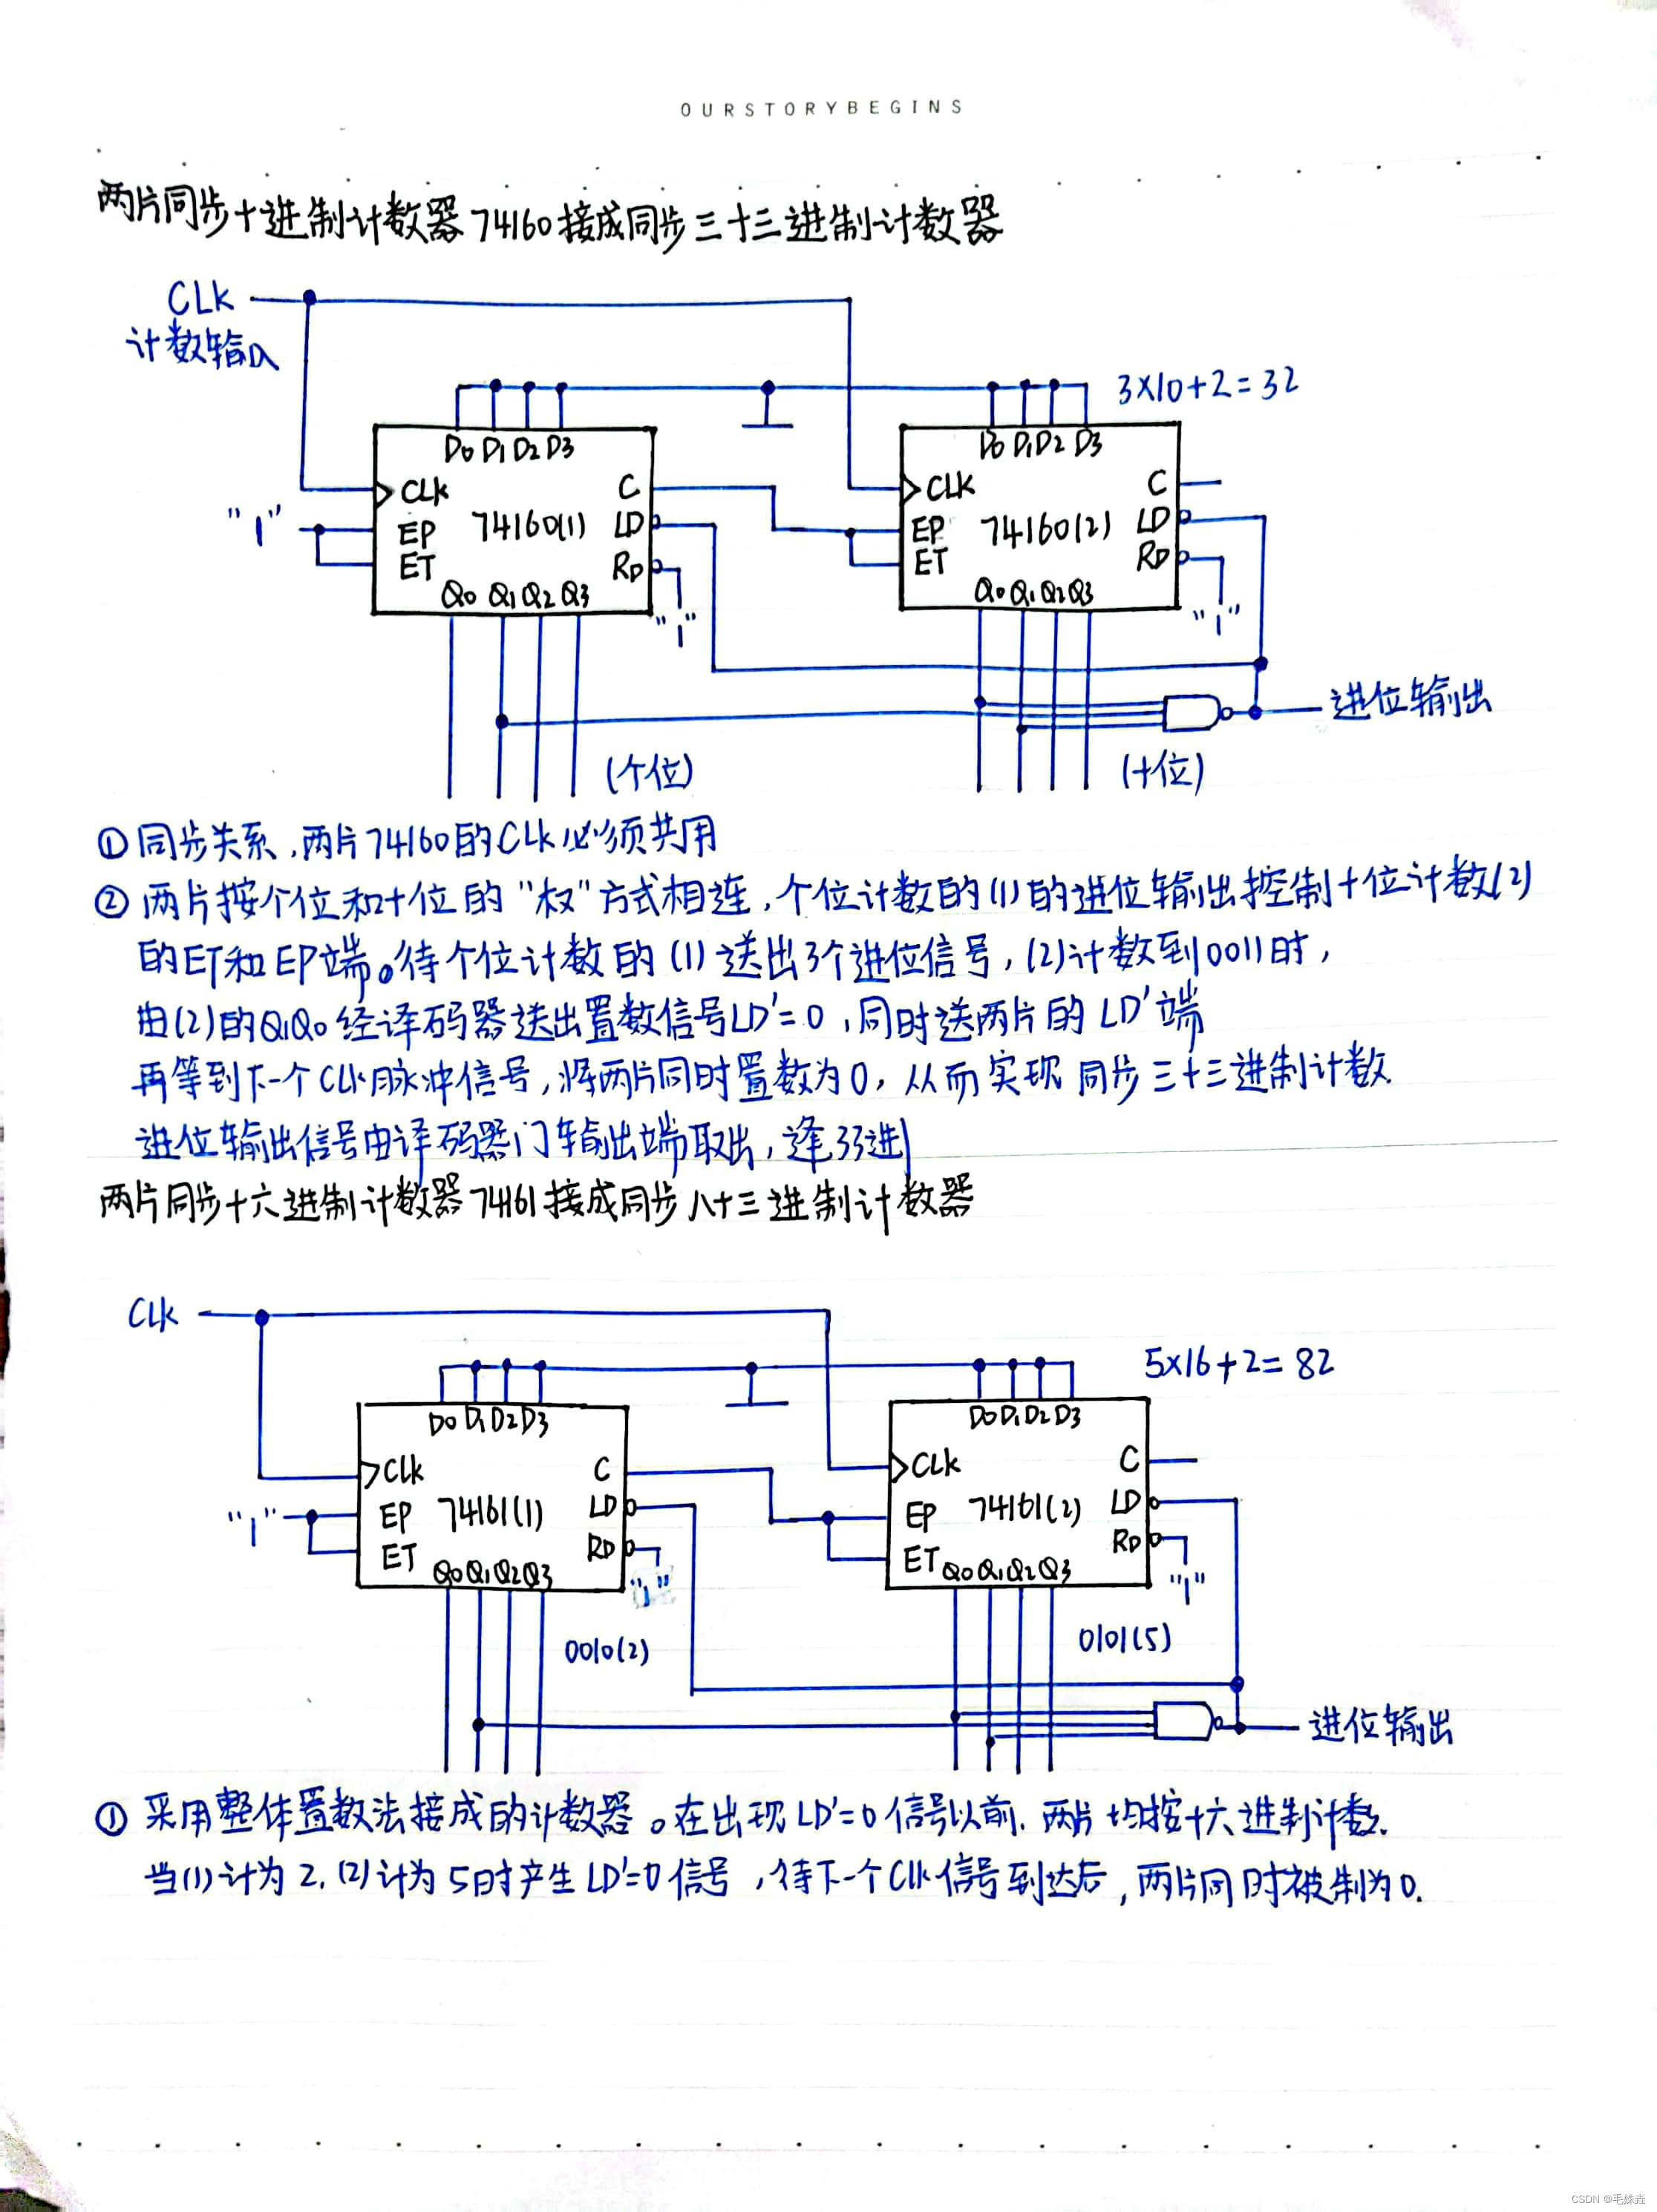 OURSTORYBEGINS
两片同步十进制计数器74160接成同步三十三进制计数器
CLK
计数输入
3×10+2=32
D0 D1 D2 D3
D0 D1 D2 D3
CLK
C
CLK
C
"1"
EP
74160(1)
LD
EP
74160(2)
LD
ET
RD
ET
RD
Q0 Q1 Q2 Q3
"1"
Q0 Q1 Q2 Q3
"1"
进位输出
(个位)
(十位)
① 同步关系,两片74160的CLK必须共用
② 两片按个位和十位的"权"方式相连,个位计数的(1)的进位输出控制十位计数(2)
的ET和EP端。待个位计数的(1)送出3个进位信号,(2)计数到0011时,
由(2)的Q1Q0经译码器送出置数信号LD'=0,同时送两片的LD'端
再等到下一个CLK脉冲信号,将两片同时置数为0,从而实现同步三十三进制计数.
进位输出信号由译码器门输出端取出,逢33进1
两片同步十六进制计数器74161接成同步八十三进制计数器
CLK
5×16+2=82
D0 D1 D2 D3
D0 D1 D2 D3
CLK
C
CLK
C
"1"
EP
74161(1)
LD
EP
74161(2)
LD
ET
RD
ET
RD
Q0 Q1 Q2 Q3
"1"
Q0 Q1 Q2 Q3
"1"
0010(2)
0101(5)
进位输出
① 采用整体置数法接成的计数器。在出现LD'=0信号以前.两片均按十六进制计数.
当(1)计为2,(2)计为5时产生LD'=0信号,待下一个CLK信号到达后,两片同时被制为0.
CSDN @毛姝垚